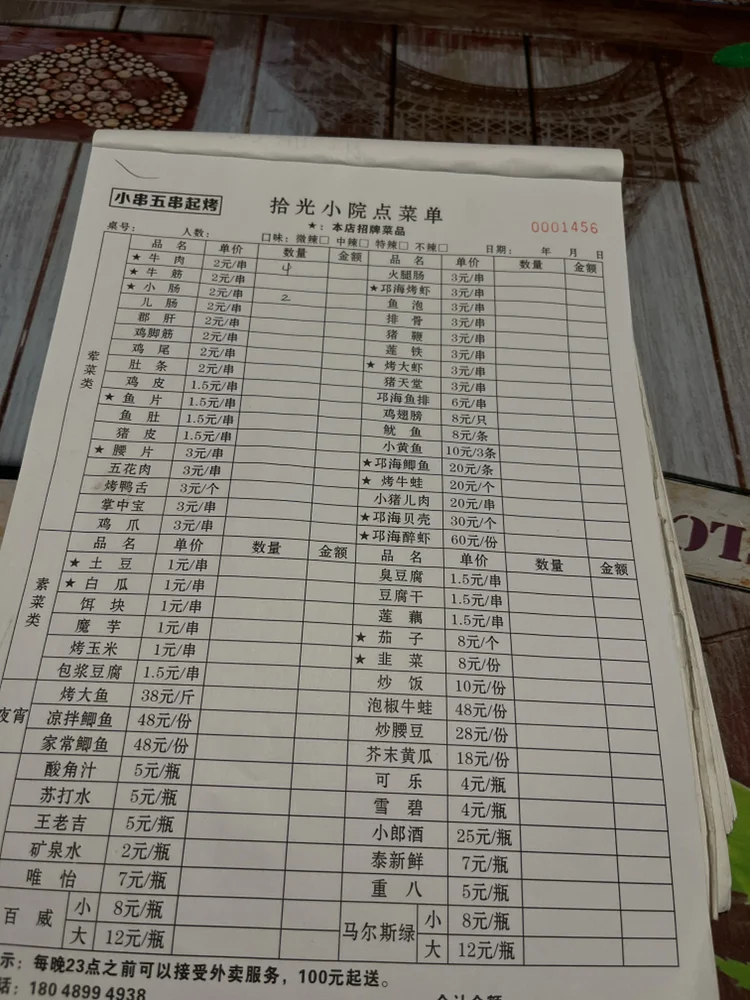 小串五串起烤
拾光小院点菜单
★：本店招牌菜品
0001456
桌号： 人数： 口味：微辣□ 中辣□ 特辣□ 不辣□ 日期： 年 月 日
品名 单价 数量 金额 品名 单价 数量 金额
荤菜类
★牛肉 2元/串 4 火腿肠 3元/串
★牛筋 2元/串 ★邛海烤虾 3元/串
★小肠 2元/串 2 鱼泡 3元/串
儿肠 2元/串 排骨 3元/串
郡肝 2元/串 猪鞭 3元/串
鸡脚筋 2元/串 莲铁 3元/串
鸡尾 2元/串 ★烤大虾 3元/串
肚条 2元/串 猪天堂 3元/串
鸡皮 1.5元/串 邛海鱼排 6元/串
★鱼片 1.5元/串 鸡翅膀 8元/只
鱼肚 1.5元/串 鱿鱼 8元/条
猪皮 1.5元/串 小黄鱼 10元/3条
★腰片 3元/串 ★邛海鲫鱼 20元/条
五花肉 3元/串 ★烤牛蛙 20元/个
烤鸭舌 3元/个 小猪儿肉 20元/串
掌中宝 3元/串 ★邛海贝壳 30元/个
鸡爪 3元/串 ★邛海醉虾 60元/份
品名 单价 数量 金额 品名 单价 数量 金额
素菜类
★土豆 1元/串 臭豆腐 1.5元/串
★白瓜 1元/串 豆腐干 1.5元/串
饵块 1元/串 莲藕 1.5元/串
魔芋 1元/串 ★茄子 8元/个
烤玉米 1元/串 ★韭菜 8元/份
包浆豆腐 1.5元/串 炒饭 10元/份
夜宵
烤大鱼 38元/斤 泡椒牛蛙 48元/份
凉拌鲫鱼 48元/份 炒腰豆 28元/份
家常鲫鱼 48元/份 芥末黄瓜 18元/份
酸角汁 5元/瓶 可乐 4元/瓶
苏打水 5元/瓶 雪碧 4元/瓶
王老吉 5元/瓶 小郎酒 25元/瓶
矿泉水 2元/瓶 泰新鲜 7元/瓶
唯怡 7元/瓶 重八 5元/瓶
百威 小 8元/瓶 马尔斯绿 小 8元/瓶
大 12元/瓶 大 12元/瓶
示：每晚23点之前可以接受外卖服务，100元起送。
话：180 4899 4938